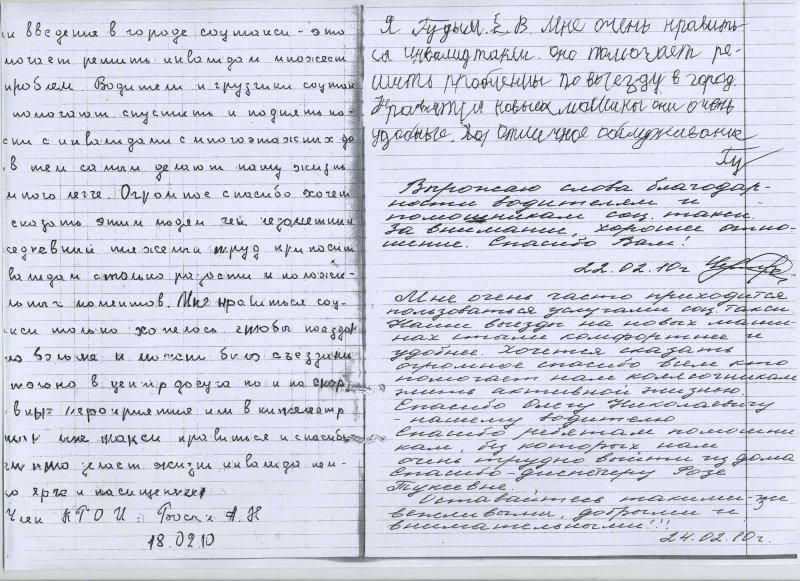 и введение в городе соцтакси - это
могает решить инвалидам множест
проблем. Водители и грузчики соцтак
помогают спустить и поднять ко-
ски с инвалидами с многоэтажных до
в тем самым делают нашу жизнь
много легче. Огромное спасибо хочет
сказать этим людям чей незаметный
седневный тяжелый труд приносит
валидам столько радости и положи-
льных моментов. Мне нравиться соц-
кси только хотелось чтобы поездок
ло больше и можно было съездить
только в центр досуга но и на скор
вные мероприятия или в кинотеатр
мне такси нравиться и спасибо
делает жизнь инвалида нем-
го ярче и насыщенней
Член КТОИ: А Н
18.02 10
Я Гудым Е. В. Мне очень нравить-
ся инвалидтакси. оно помогает ре-
шить проблемы по выезду в город.
Нравятся новые машины они очень
удобные. отличное обслуживание
Гу
Выражаю слова благодар-
ности водителям и
помошникам соц. такси.
За внимание, хорошее отно-
шение. Спасибо Вам!
22.02.10г
Мне очень часто приходится
пользоваться услугами соц. такси.
Наши выезды на новых маши-
нах стали комфортнее и
удобнее. Хочется сказать
огромное спасибо всем кто
помогает нам колясочникам
жить активной жизнью.
Спасибо Олегу Николаевичу
нашему водителю
Спасибо ребятам помошни-
кам, без которых нам
очень трудно выйти из дома
Спасибо - диспетчеру Розе
Тукеевне.
Оставайтесь такими-же
вежливыми, добрыми и
внимательными!!!
24.02.10г.